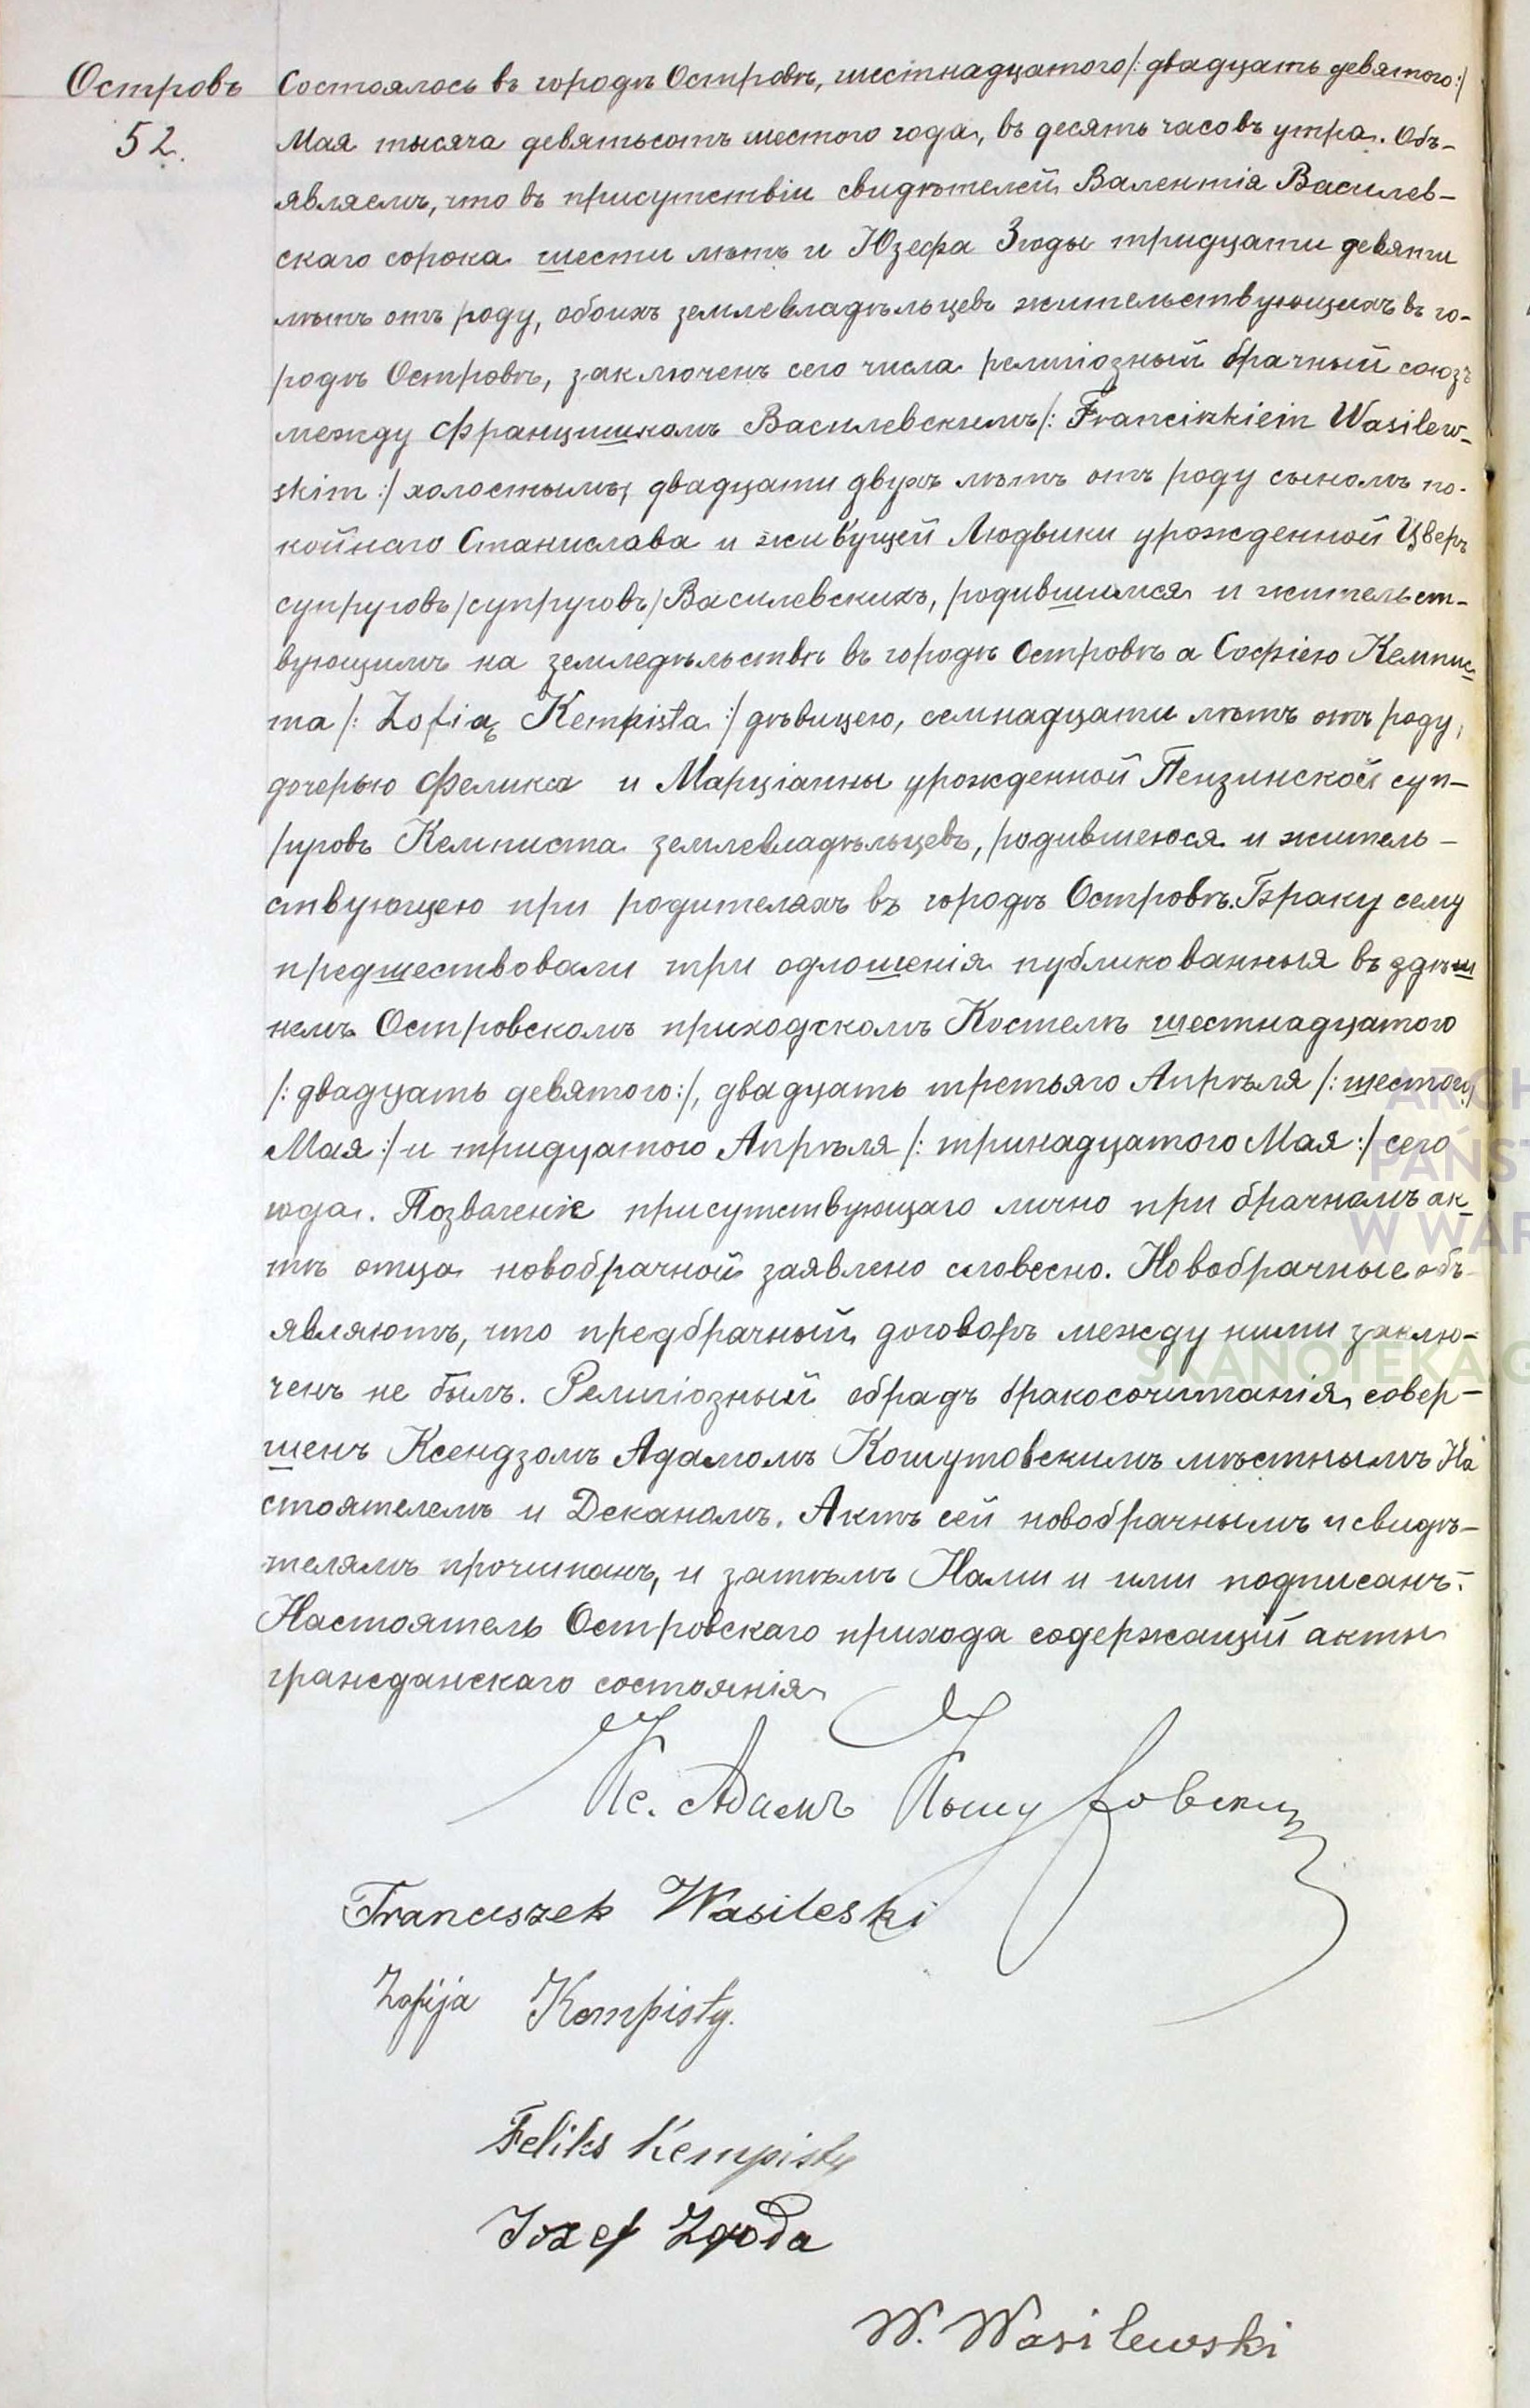 Островъ
52.
Состоялось въ городѣ Островѣ, шестнадцатого /: двадцать девятого :/
Мая тысяча девятьсотъ шестого года, въ десять часовъ утра. Объ-
являемъ, что въ присутствіи свидѣтелей Валентія Василев-
скаго сорока шести лѣтъ и Юзефа Згоды тридцати девяти
лѣтъ отъ роду, обоихъ землевладѣльцевъ жительствующихъ въ го-
родѣ Островѣ, заключенъ сего числа религіозный брачный союзъ
между Францишкомъ Василевскимъ /: Wasilew-
skim :/ холостымъ, двадцати двухъ лѣтъ отъ роду сыномъ по-
койнаго Станислава и живущей Людвики урожденной Цверъ
супруговъ /супруговъ/ Василевскихъ, родившимся и жительст-
вующимъ на земледѣльствѣ въ городѣ Островѣ а Софіею Кемпис
та /: Zofią Kempista :/ дѣвицею, семнадцати лѣтъ отъ роду,
дочерью Феликса и Марціанны урожденной Пензинской суп-
руговъ Кемписта землевладѣльцевъ, родившеюся и житель-
ствующею при родителяхъ въ городѣ Островѣ. Браку сему
предшествовали три оглошенія публикованныя въ здѣш
немъ Островскомъ приходскомъ Костелѣ шестнадцатого
/: двадцать девятого :/, двадцать третьяго Апрѣля /: шестого
Мая :/ и тридцатого Апрѣля /: тринадцатого Мая :/ сего
года. Позволеніе присутствующаго лично при брачномъ ак-
тѣ отца новобрачной заявлено словесно. Новобрачные объ-
являютъ, что предбрачный договоръ между ними заклю-
ченъ не былъ. Религіозный обрадъ бракосочитанія совер-
шенъ Ксендзомъ Адамомъ Кошутовскимъ мѣстнымъ На
стоятелемъ и Деканомъ. Актъ сей новобрачнымъ и свидѣ-
телямъ прочитанъ, и затѣмъ Нами и ими подписанъ.
Настоятель Островскаго прихода содержащій акты
гражданскаго состоянія
Кс. Адамъ Кошутовскій
Franciszek Wasileski
Zofija Kempisty.
Feliks Kempisty
Jozef Zgoda
W. Wasilewski
ARCH
PAŃST
W WAR
SKANOTEKA.G